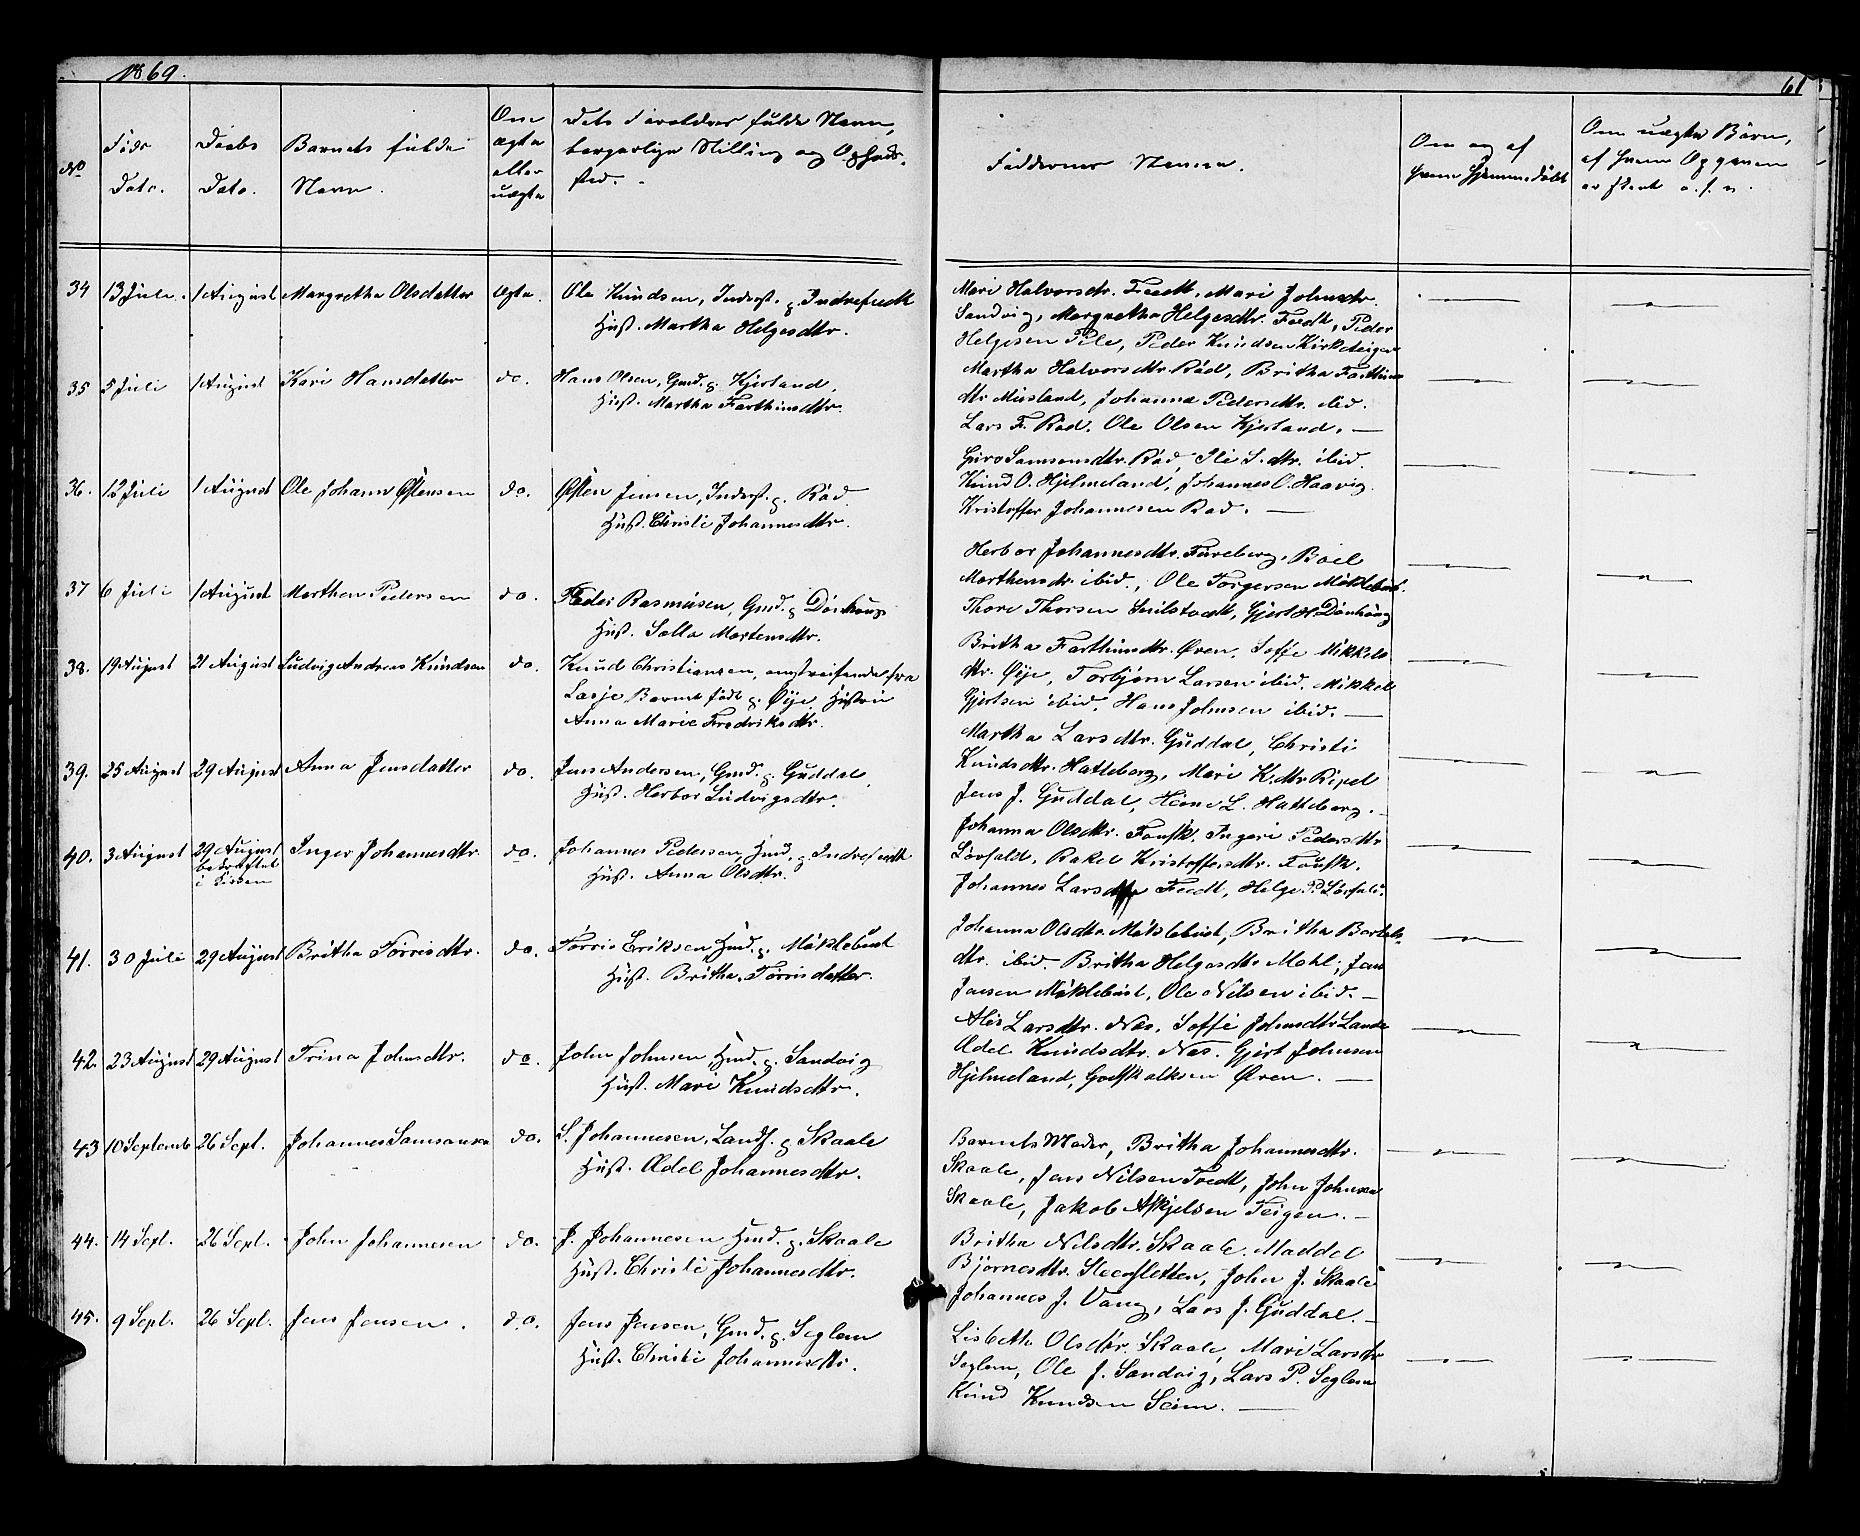 1869.
61
No
Føds
Dato.
Daabs
Dato.
Barnets fulde
Navn.
Om
ægte
eller
uægte
Dets Forældres fulde Navn,
borgerlige Stilling og Opholds-
sted.
Faddernes Navne.
Om og af
hvem hjemmedøbt
Om uægte Børn,
af hvem Opgaven
er skeet o.s.v.
34 13 Juli. 1 August Margretha Olsdatter Ægte. Ole Knudsen, Inderst. p. Indrefiedt
Hust. Martha Helgesdtr.
Mari Halvorsdtr. Tvedt, Mari Johnsdtr.
Sandvig, Margretha Helgesdtr. Tvedt, Peder
Helgesen Pile, Peder Knudsen Kirketeigen
35 5 Juli 1 August Kari Hansdatter do. Hans Olsen, Gmd. p. Kjerland,
Hust. Martha Farthinsdtr.
Martha Halvorsdtr. Rød, Britha Farthins
dtr Miesland, Johanna Pedersdtr. ibid.
Lars F. Rød. Ole Olsen Kjerland. —
36. 12 Juli 1 August Ole Johann Østensen do. Østen Jensen, Inderst. p. Rød.
Hust. Christi Johannesdtr.
Guro Samsonsdtr. Rød, Sli S. dtr. ibid.
Knud O. Hjelmeland, Johannes O. Haavig
Kristoffer Johannesen Rød. —
37 6 Juli 1 August Morthen Pedersen do. Peder Rasmusen, Gmd. p. Dønhaug
Hust. Salla Mortensdtr.
Herbor Johannesdtr. Fureberg, Boel
Morthensdtr. ibid., Ole Torgersen Møklebust.
Thore Thorsen Smilstvedt, Gjert H. Dønhaug
38. 19 August 21 August Ludvig Andreas Knudsen do. Knud Christiansen, omstreifende fra
Lasje Barnet født p. Øye, Hustru
Anna Marie Fredriksdtr.
Britha Farthinsdtr. Øren, Soffi Mikkels
dtr. Øye, Torbjørn Larsen ibid. Mikkel
Gjertsen ibid. Hans Johnsen ibid. —
39. 25 August 29 August Anna Jensdatter do. Jens Andersen, Gmd. p. Guddal,
Hust. Herbor Ludvigsdtr.
Martha Larsdtr. Guddal, Christi
Knudsdtr. Hatteberg, Mari K. dtr Ripel
Jens J. Guddal, Heine L. Hatteberg. —
40. 3 August 29 August
bekræftet
i Kirken
Inger Johannesdtr do. Johannes Pedersen, Hmd. p. Indrefiedt
Hust. Anna Olsdtr.
Johanna Olsdtr. Fousk, Ingeri Pedersdtr
Løvfald, Rakel Kristoffersdtr. Fousk.
Johannes Larsen Tvedt, Helge P. Løvfald.
41. 30 Juli 29 August Britha Torrisdtr. do. Torris Eriksen Hmd. p. Møklebust
Hust. Britha Torrisdatter.
Johanna Olsdtr. Møklebust, Britha Bartels-
dtr. ibid. Britha Helgesdtr. Mehl, Jens
Jensen Møklebust, Ole Nilsen ibid. —
42. 23 August 29 August Trina Johnsdtr. do. John Johnsen Hmd. p. Sandvig
Hust. Mari Knudsdtr.
Alis Larsdtr. Næs, Soffi Johnsdtr Lande
Ædel Knudsdtr. Næs. Gjert Johnsen
Hjelmeland, Godskalksen Øren. —
43 10 Septemb 26 Sept. Johannes Samsonsen do. S. Johannesen, Landh. p. Skaale
Hust. Ædel Johannesdtr.
Barnets Moder, Britha Johannesdtr.
Skaale, Jens Nilsen Tvedt, John Johnsen
Skaale, Jakob Askjelsen Teigen. —
44. 14 Sept. 26 Sept. John Johannesen do. J. Johannesen Hmd. p. Skaale
Hust. Christi Johannesdtr.
Britha Nilsdtr. Skaale, Maddel
Bjørnesdtr. Steensletten, John J. Skaale
Johannes J. Vang, Lars J. Guddal. —
45. 9 Sept. 26 Sept. Jens Jensen. do. Jens Jensen, Gmd. p. Seglem
Hust. Christi Johannesdtr.
Lisbeth Olsdtr. Skaale, Mari Larsdtr
Seglem, Ole J. Sandvig, Lars P. Seglem
Knud Knudsen Seim. —